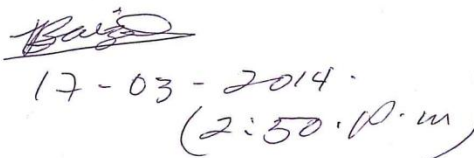 17-03-2014.
(2:50.p.m)